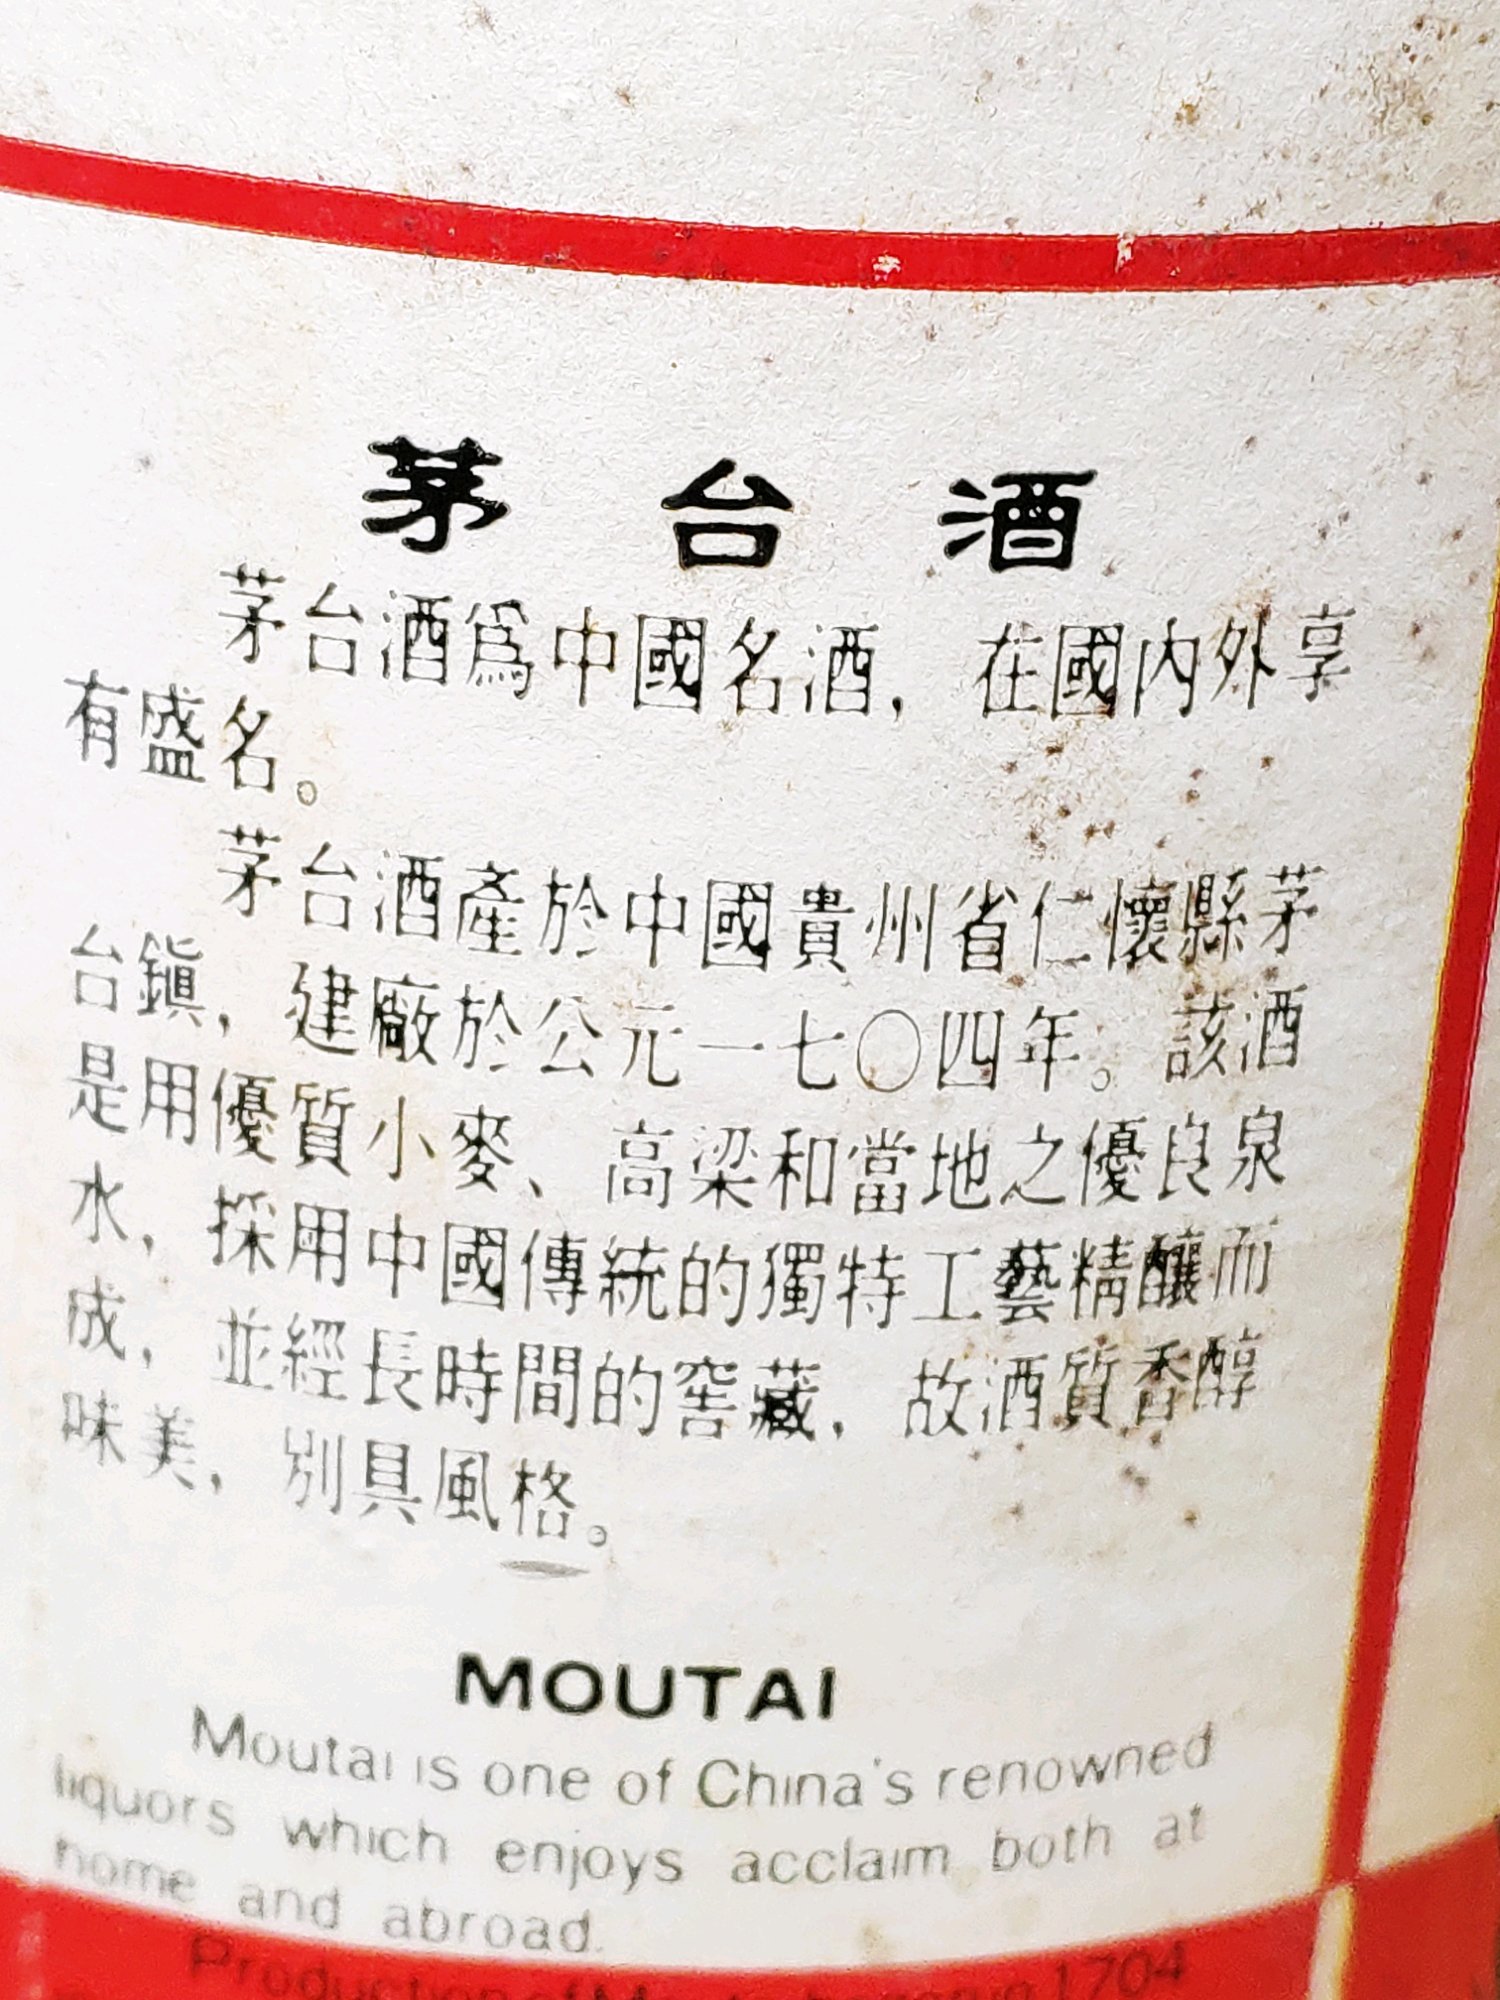 茅台酒
茅台酒爲中國名酒，在國內外享
有盛名。
茅台酒產於中國貴州省仁懷縣茅
台鎮，建廠於公元一七〇四年。該酒
是用優質小麥、高粱和當地之優良泉
水，採用中國傳統的獨特工藝精釀而
成，並經長時間的窖藏，故酒質香醇
味美，別具風格。
MOUTAI
Moutai is one of China's renowned
liquors which enjoys acclaim both at
home and abroad.
Production of 1704